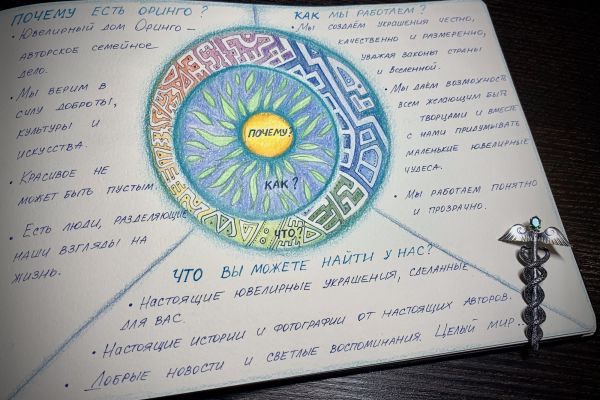 Почему есть Оринго?
• Ювелирный дом Оринго –
авторское семейное
дело.
• Мы верим в
силу доброты,
культуры и
искусства.
• Красивое не
может быть пустым.
• Есть люди, разделяющие
наши взгляды на
жизнь.
Как мы работаем?
• Мы создаём украшения честно,
качественно и размеренно,
уважая законы страны
и Вселенной.
• Мы даём возможность
всем желающим быть
творцами и вместе
с нами придумывать
маленькие ювелирные
чудеса.
• Мы работаем понятно
и прозрачно.
Почему?
Как?
Что?
Что вы можете найти у нас?
• Настоящие ювелирные украшения, сделанные
для вас.
• Настоящие истории и фотографии от настоящих авторов.
• Добрые новости и светлые воспоминания. Целый мир...